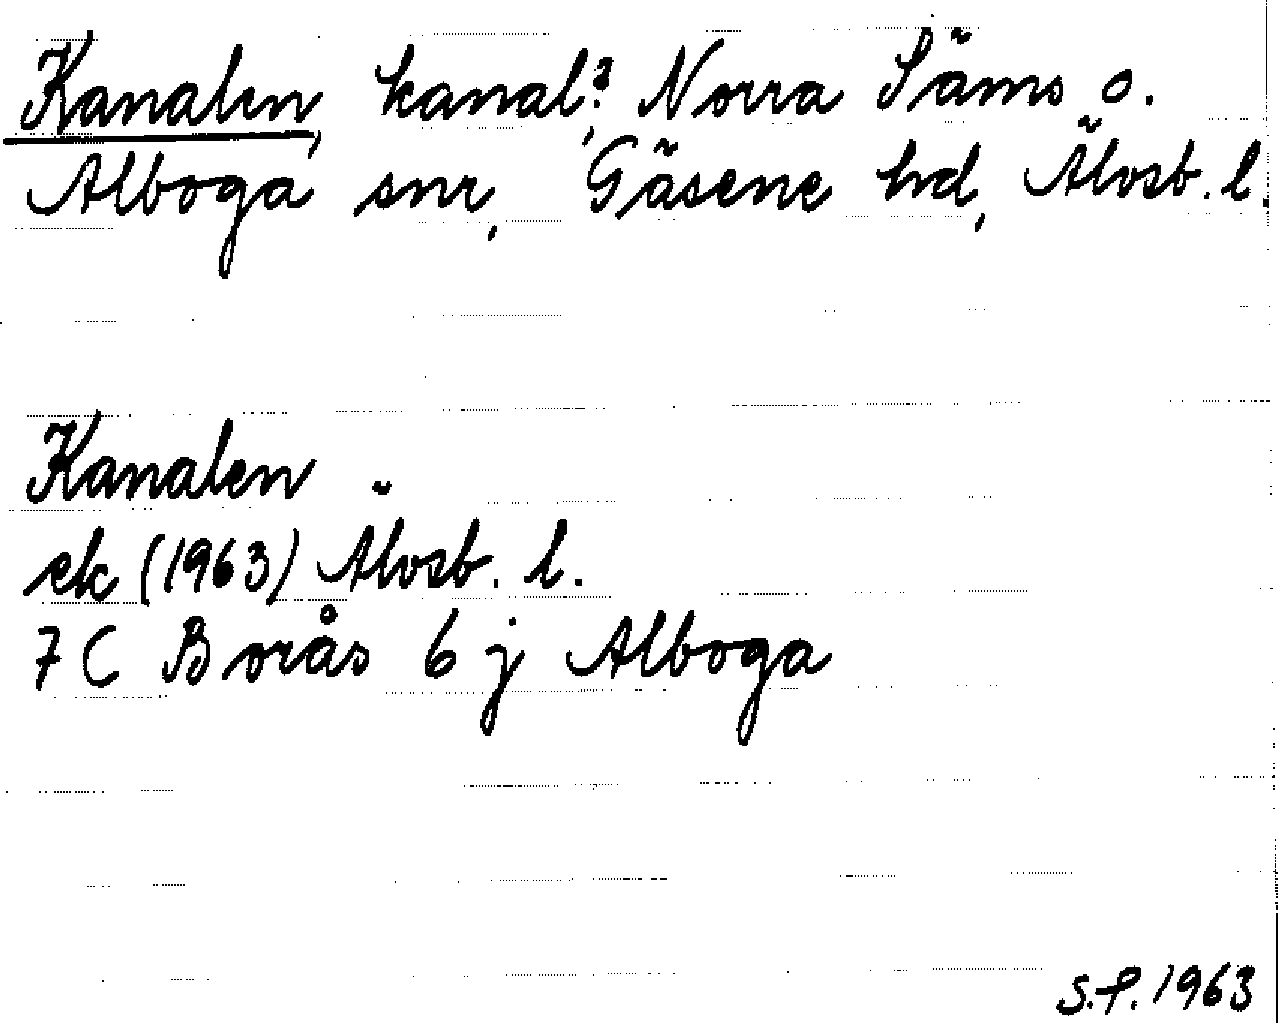 Kanalen, kanal?, Norra Säms o.
Alboga snr, Gäsene hd, Älvsb. l.
Kanalen
ek (1963) Älvsb. l.
7 C Borås 6 j Alboga
S.P. 1963